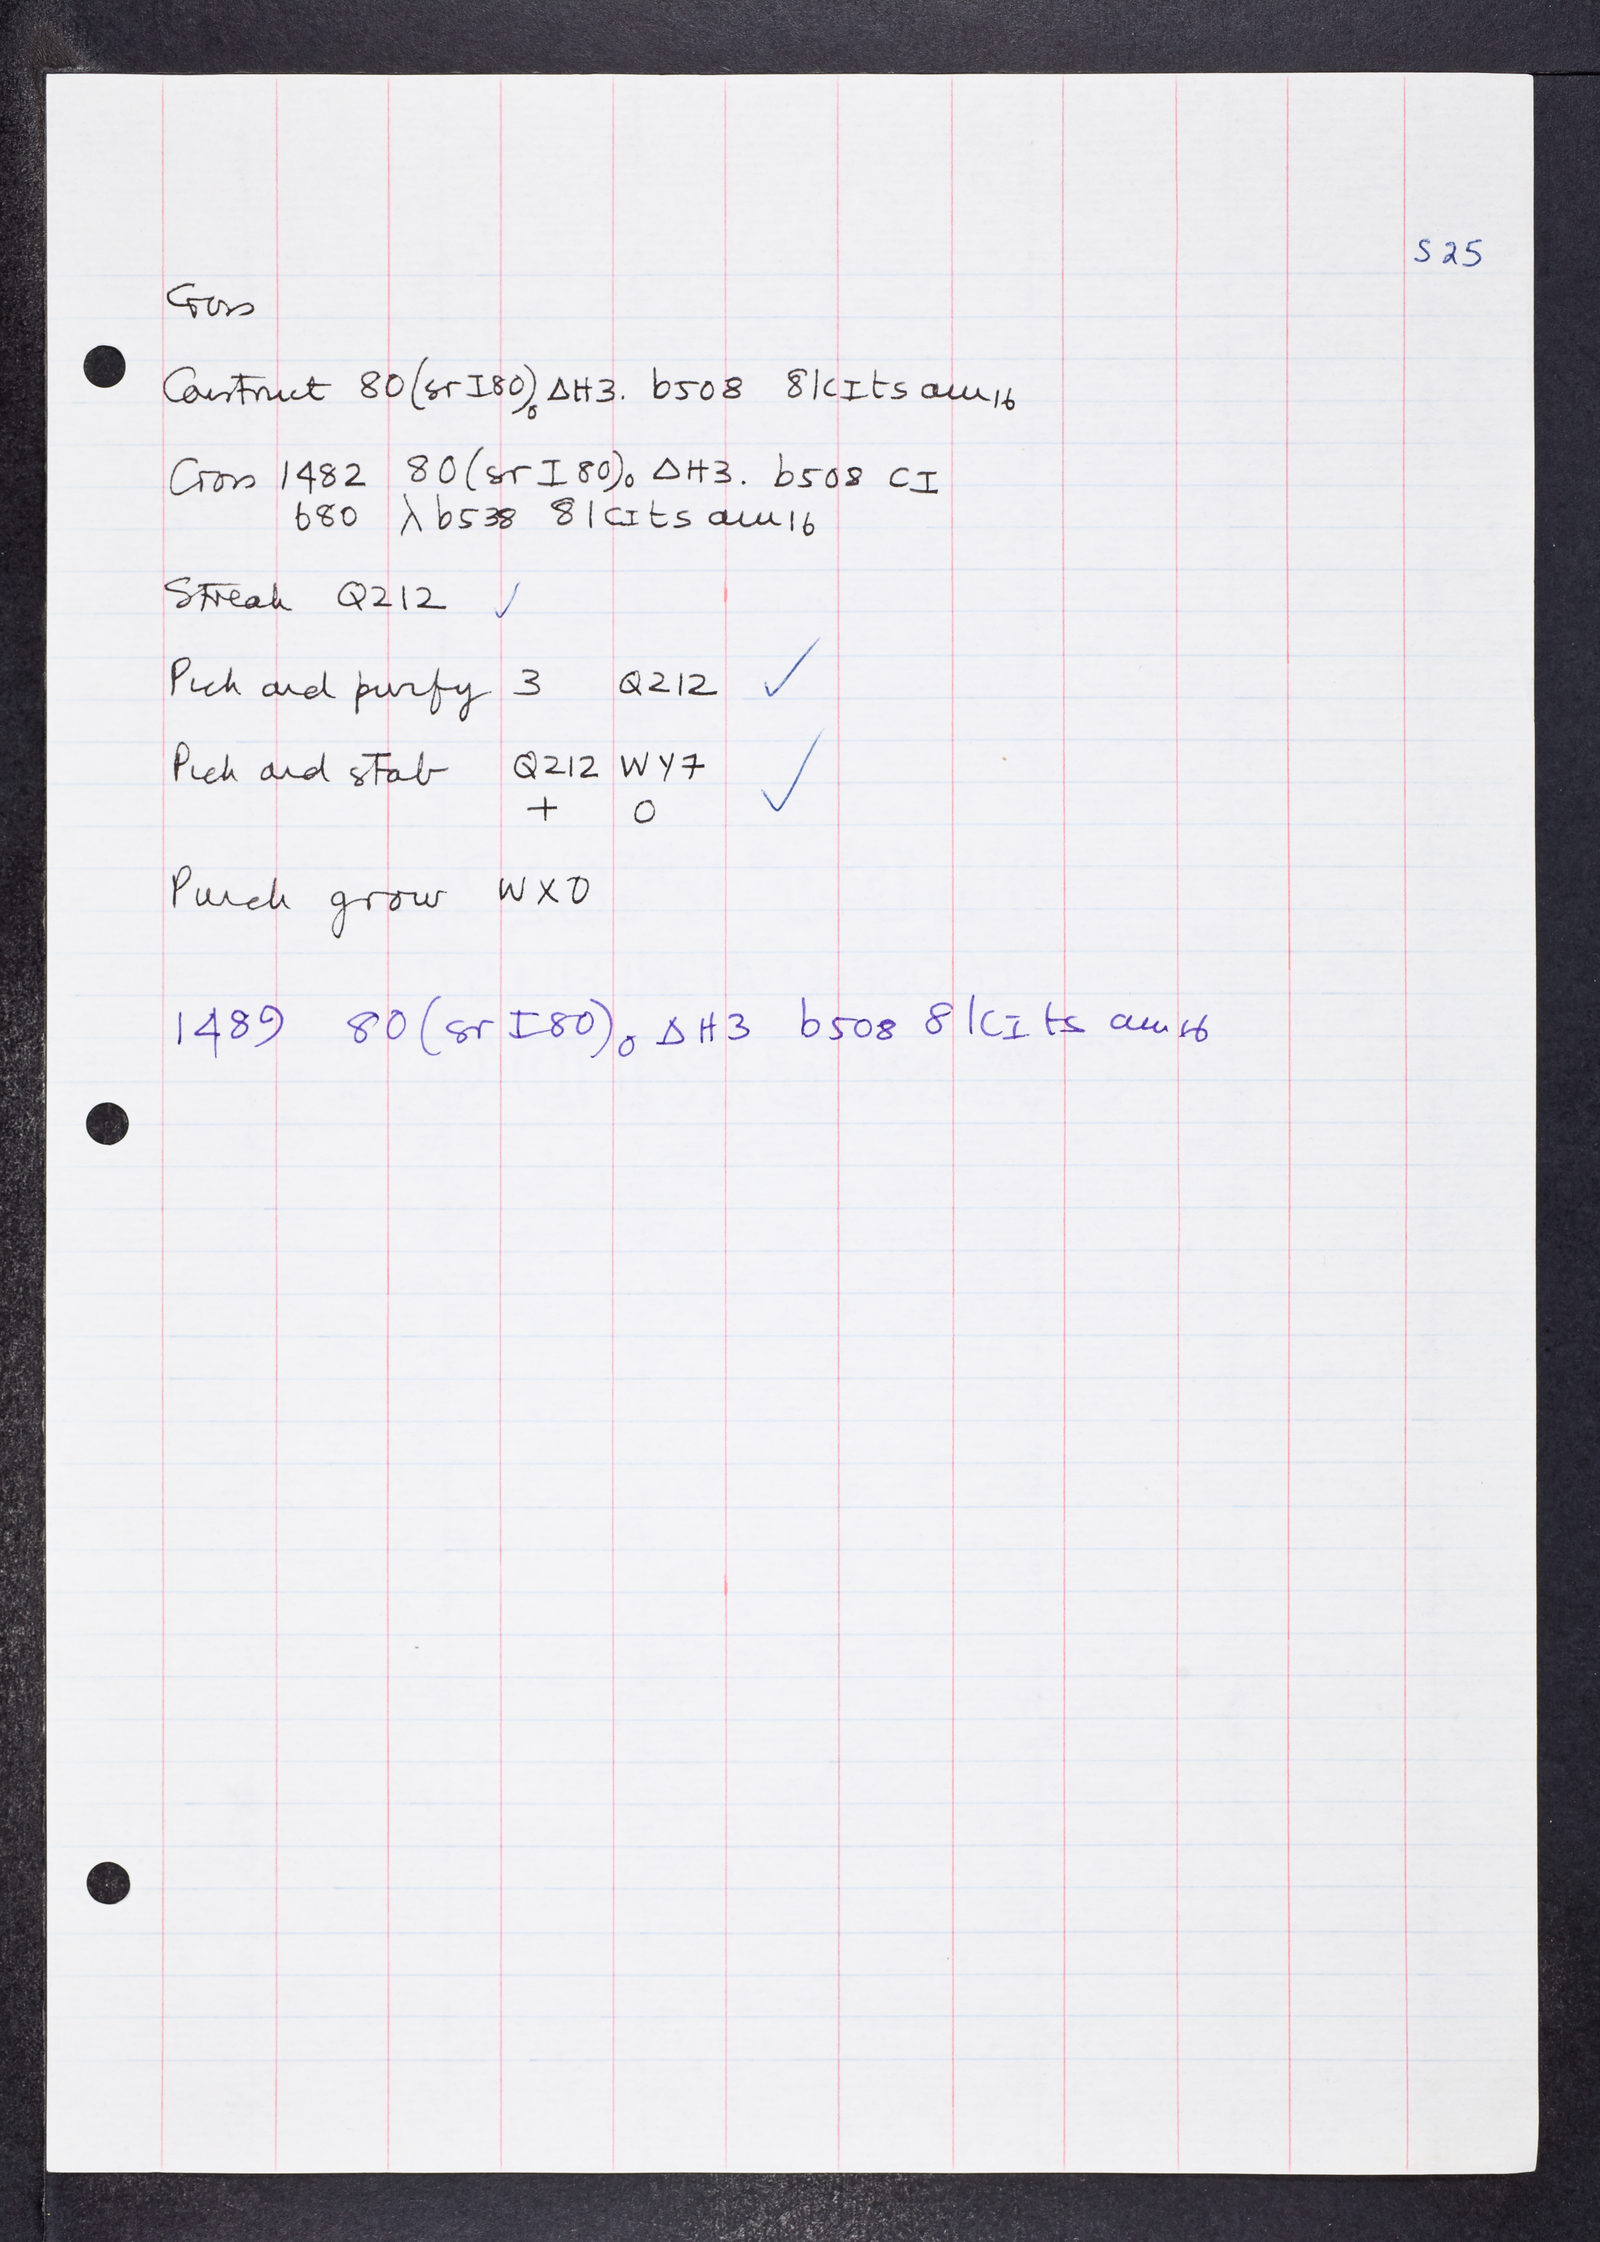 S 25
Cross
Construct 80(srI80)₀ ΔH3. b508 81cIts am16
Cross 1482 80(srI80)₀ ΔH3. b508 cI
680 λ b538 81cIts am16
Streak Q212 ✓
Pick and purify 3 Q212 ✓
Pick and stab Q212 WY7 ✓
+ 0
Punch grow WX0
1489 80(srI80)₀ ΔH3 b508 81cIts am16